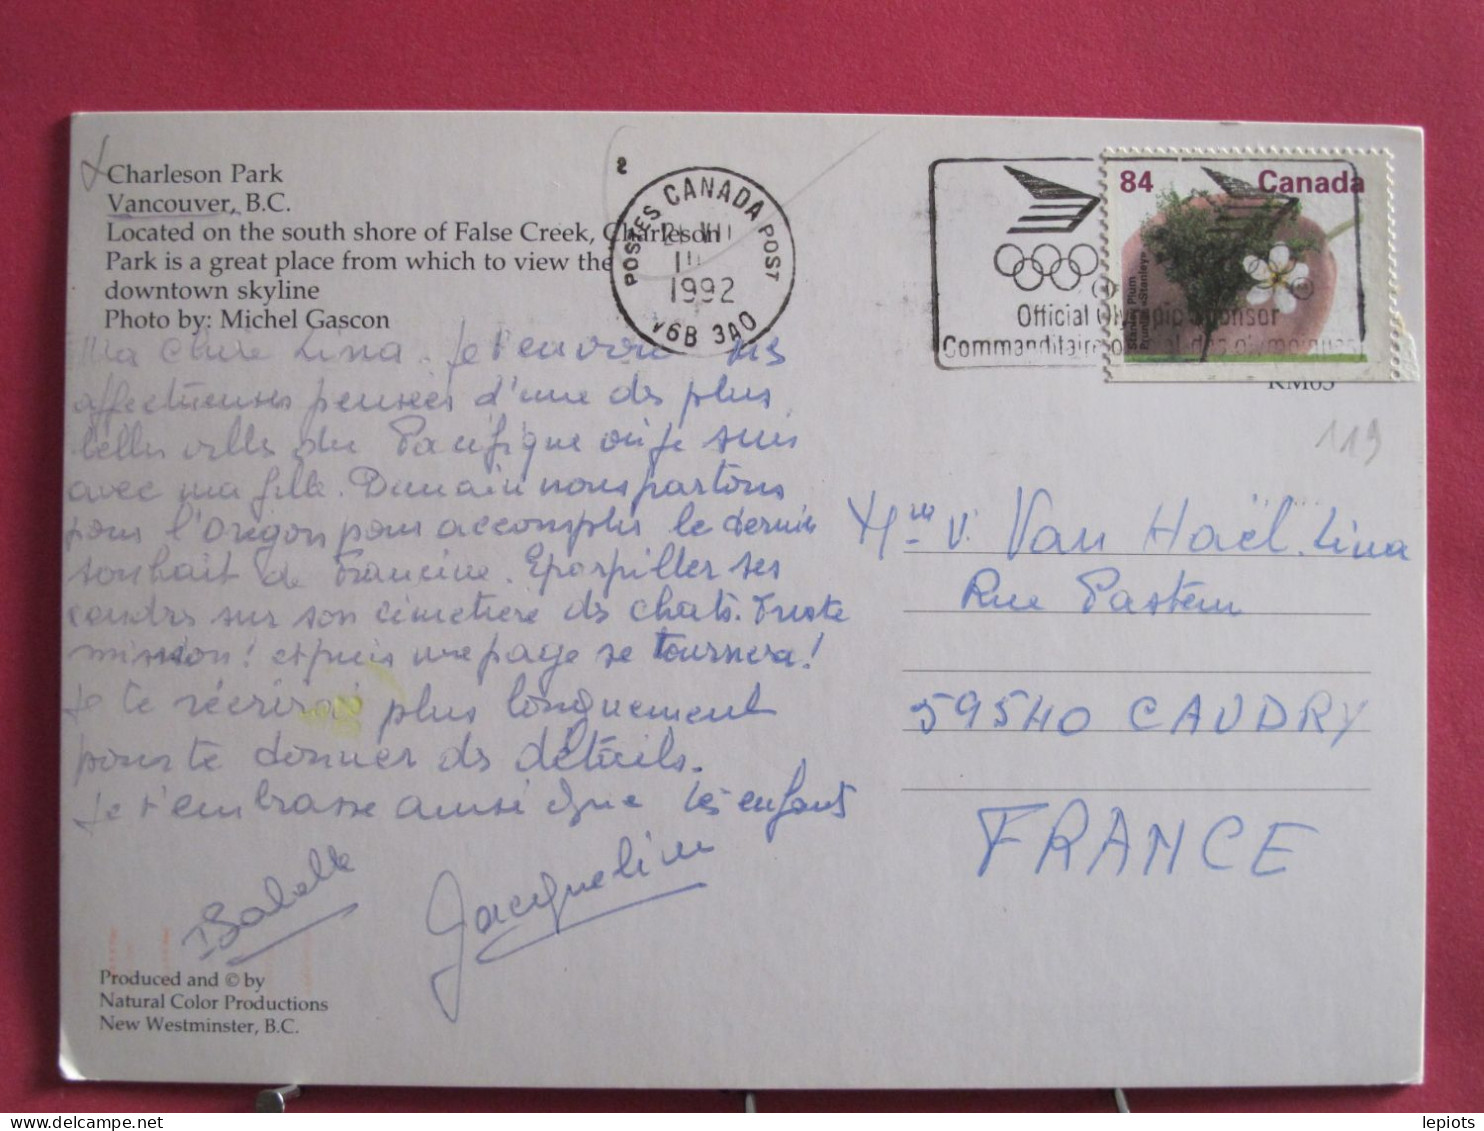 Charleson Park
Vancouver, B.C.
Located on the south shore of False Creek, Charleson
Park is a great place from which to view the
downtown skyline
Photo by: Michel Gascon
Ma chère Lina. Je t'envoie mes
affectueuses pensées d'une des plus
belles villes du Pacifique où je suis
avec ma fille. Demain nous partons
pour l'Orégon pour accomplir le dernier
souhait de Francine. Eparpiller ses
cendres sur son cimetière des chats. Triste
mission! et puis une page se tournera!
Je te récrirai plus longuement
pour te donner des détails.
Je t'embrasse ainsi que les enfants
Isabelle
Jacqueline
Produced and © by
Natural Color Productions
New Westminster, B.C.
POSTES CANADA POST
1992
V6B 3A0
Official Olympic Sponsor
Commanditaire official des olympiques
84 Canada
Stanley Plum
Prunier «Stanley»
RM65
119
Mme V. Van Haël. Lina
Rue Pasteur
59540 CAUDRY
FRANCE
lepiots